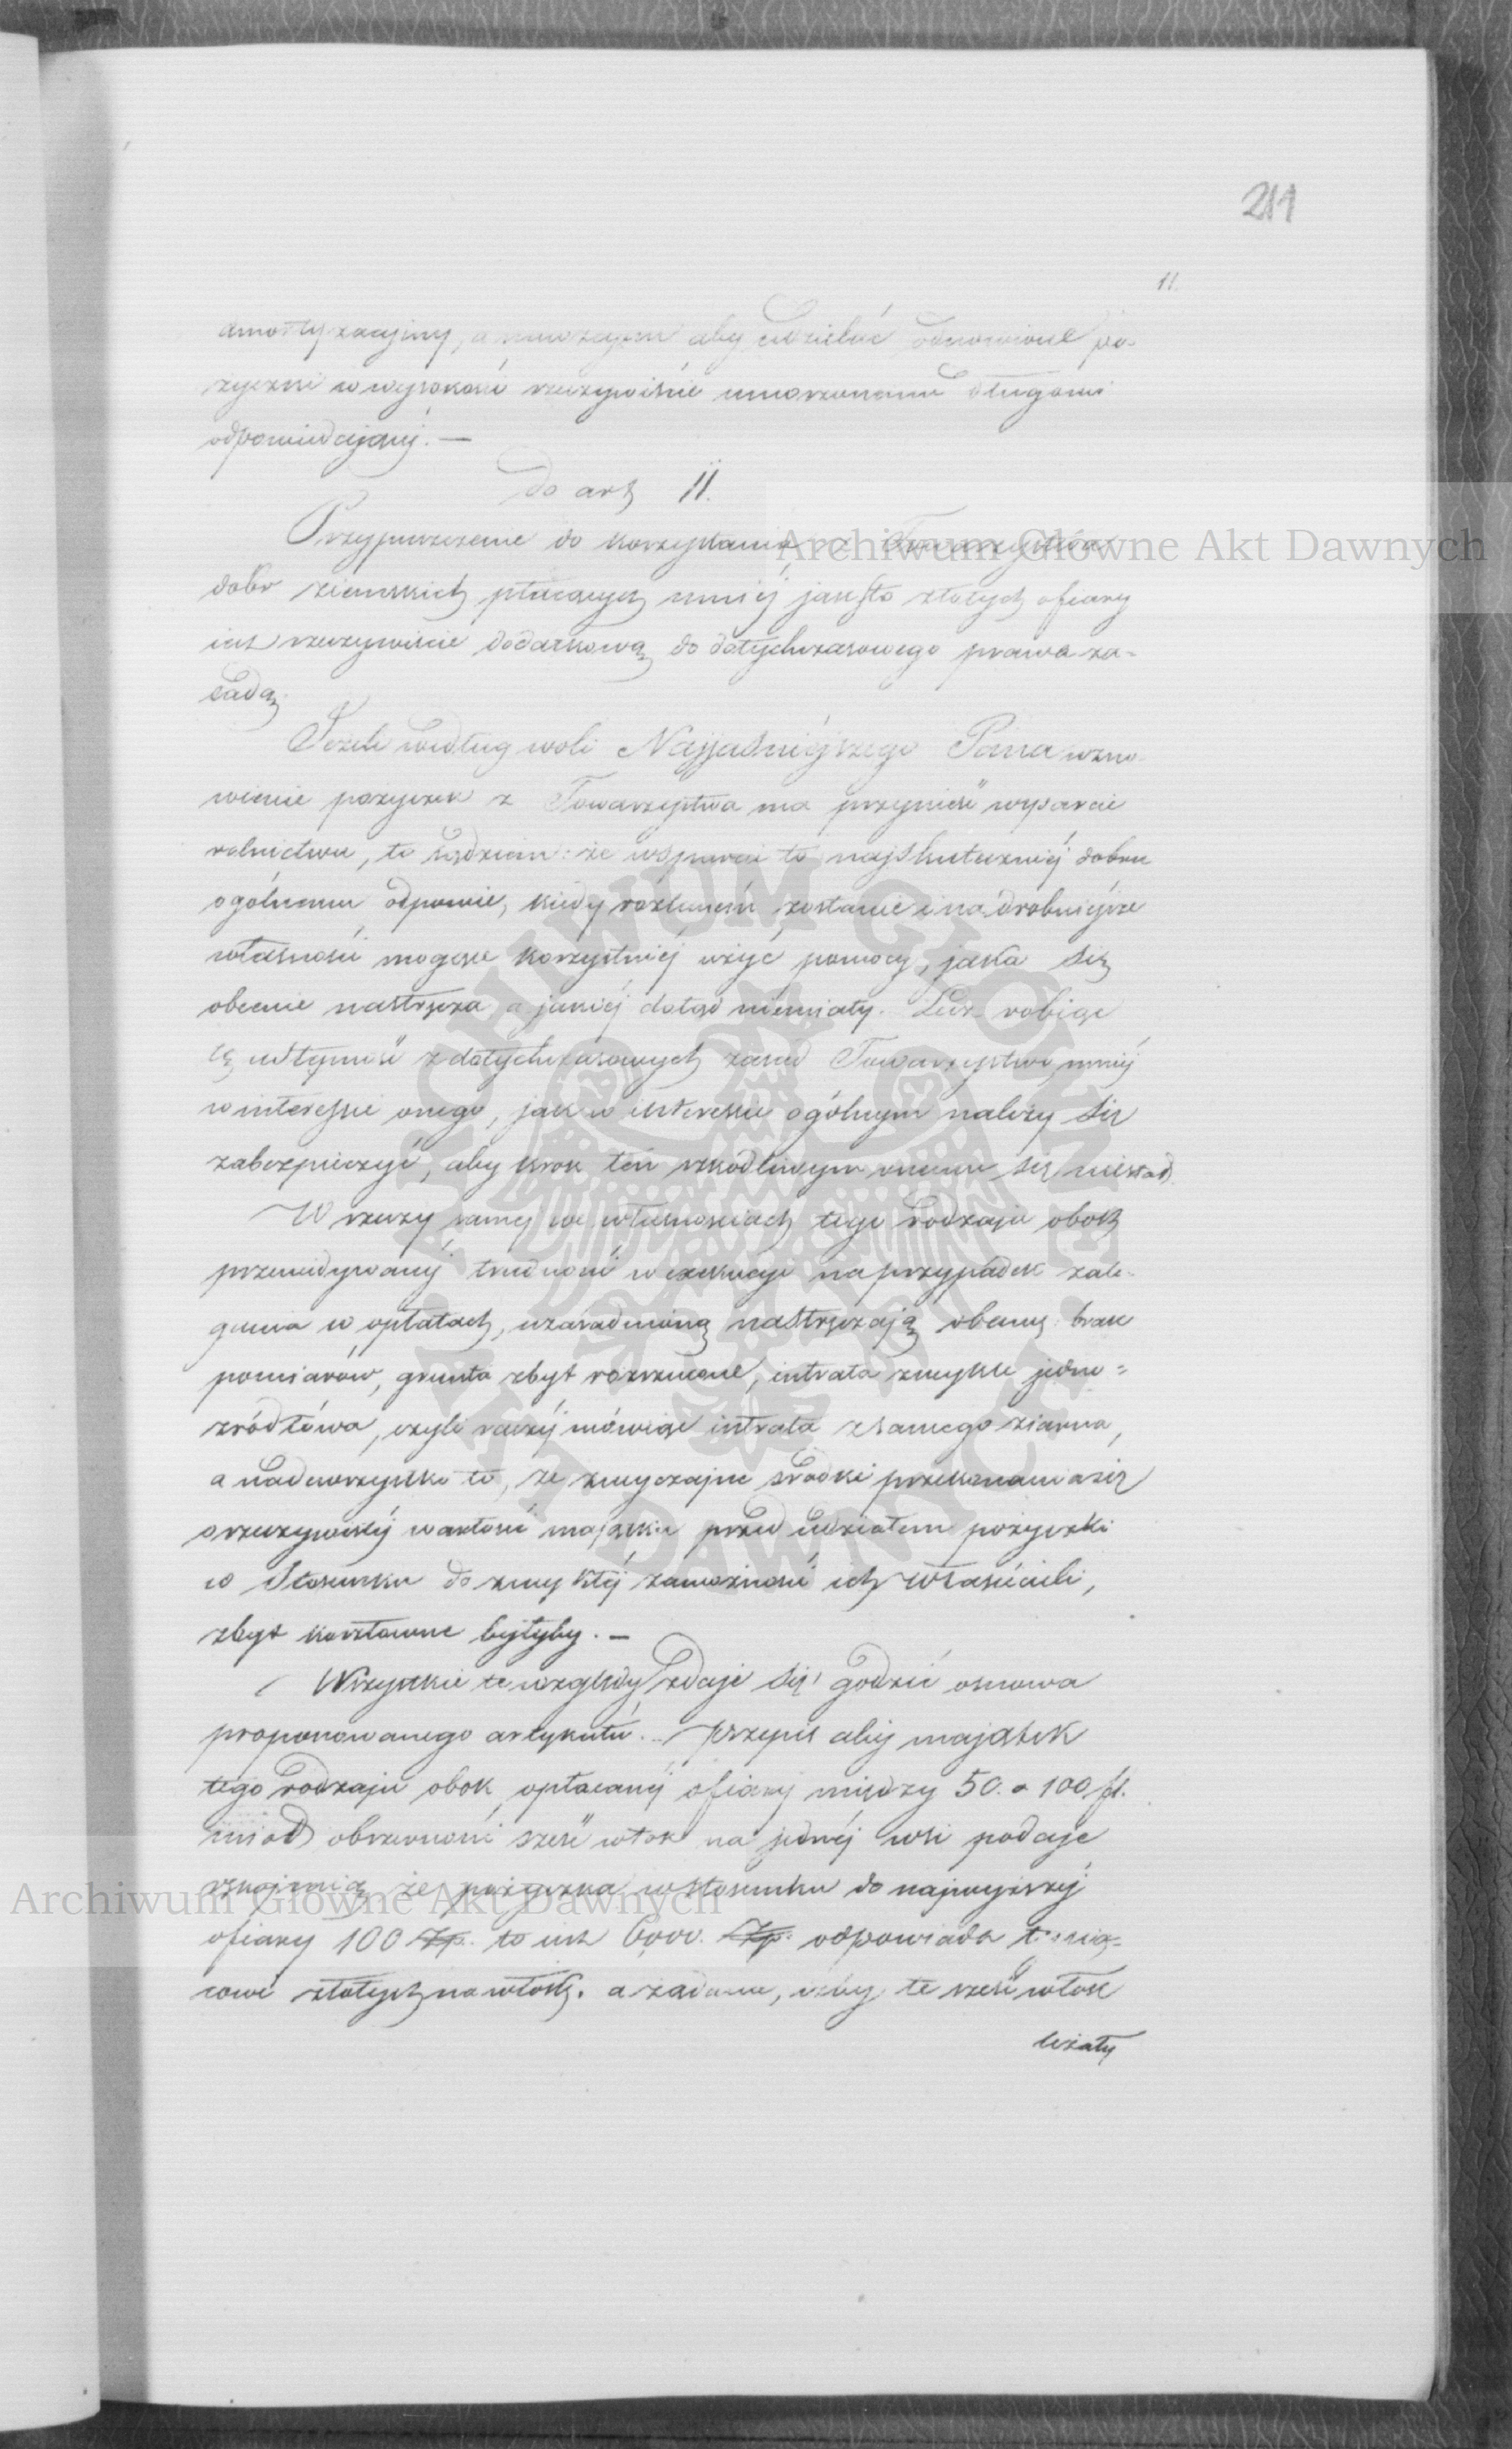 211
11.
amortyzacyjny, a zarazem aby udzielać odnowione po-
życzki w wysokości rzeczywiście umorzonemu długowi
odpowiedającej. —
do art 11.
Przypuszczenie do korzystania z Towarzystwa
dobr ziemskich płacących mniéj jak sto złotych ofiary
iest rzeczywiście dodatkową do dotychczasowego prawa za-
sadą.
Jeżeli według woli Najjaśniéjszego Pana wzno-
wienie pożyczek z Towarzystwa ma przynieść wsparcie
rolnictwu, to sądziem: że wsparcie to najskuteczniéj dobru
ogólnemu odpowie, kiedy zostanie i na drobniéjsze
własności mogące korzystniéj użyć pomocy, jaka się
obecnie nastręcza a jakiéj dotąd niemiały. Lecz robiąc
tę z dotychczasowych zasad Towarzystwa, mniéj
w interessie onego, jak w interessie ogólnym należy się
zabezpieczyć, aby krok ten szkodliwym onemu się niestał.
W rzeczy saméj we własnościach tego rodzaju obok
przewidywanéj trudności w exekucyi na przypadek zale-
gania w opłatach, uzasadnioną nastręczają obawę: brak
pomiarów, grunta zbyt rozrzucone, intrata zwykle jedno=
źródłowa, czyli raczéj mówiąc intrata z samego ziarna,
a nadewszystko to, że zwyczajne środki przekonania się
o rzeczywistéj wartości majątku przed udziałem pożyczki
w stosunku do zwykłéj zamożności ich właścicieli,
zbyt kosztowne byłyby. —
Wszystkie te względy zdaje się godzić osnowa
proponowanego artykułu. — Przepis aby majątek
tego rodzaju obok opłacanéj ofiary między 50. a 100 fl.
miał obszerności sześć włók na jednéj wsi podaje
rękojmią, że pożyczka w stosunku do najwyższéj
ofiary 100 Zp. to iest 6,000. Zp. odpowiada tysią=
cowi złotych na włókę. a żądanie, iżby te sześć włók
leżały
Archiwum Główne Akt Dawnych
Archiwum Główne Akt Dawnych
ARCHIWUM GŁÓWNE AKT DAWNYCH